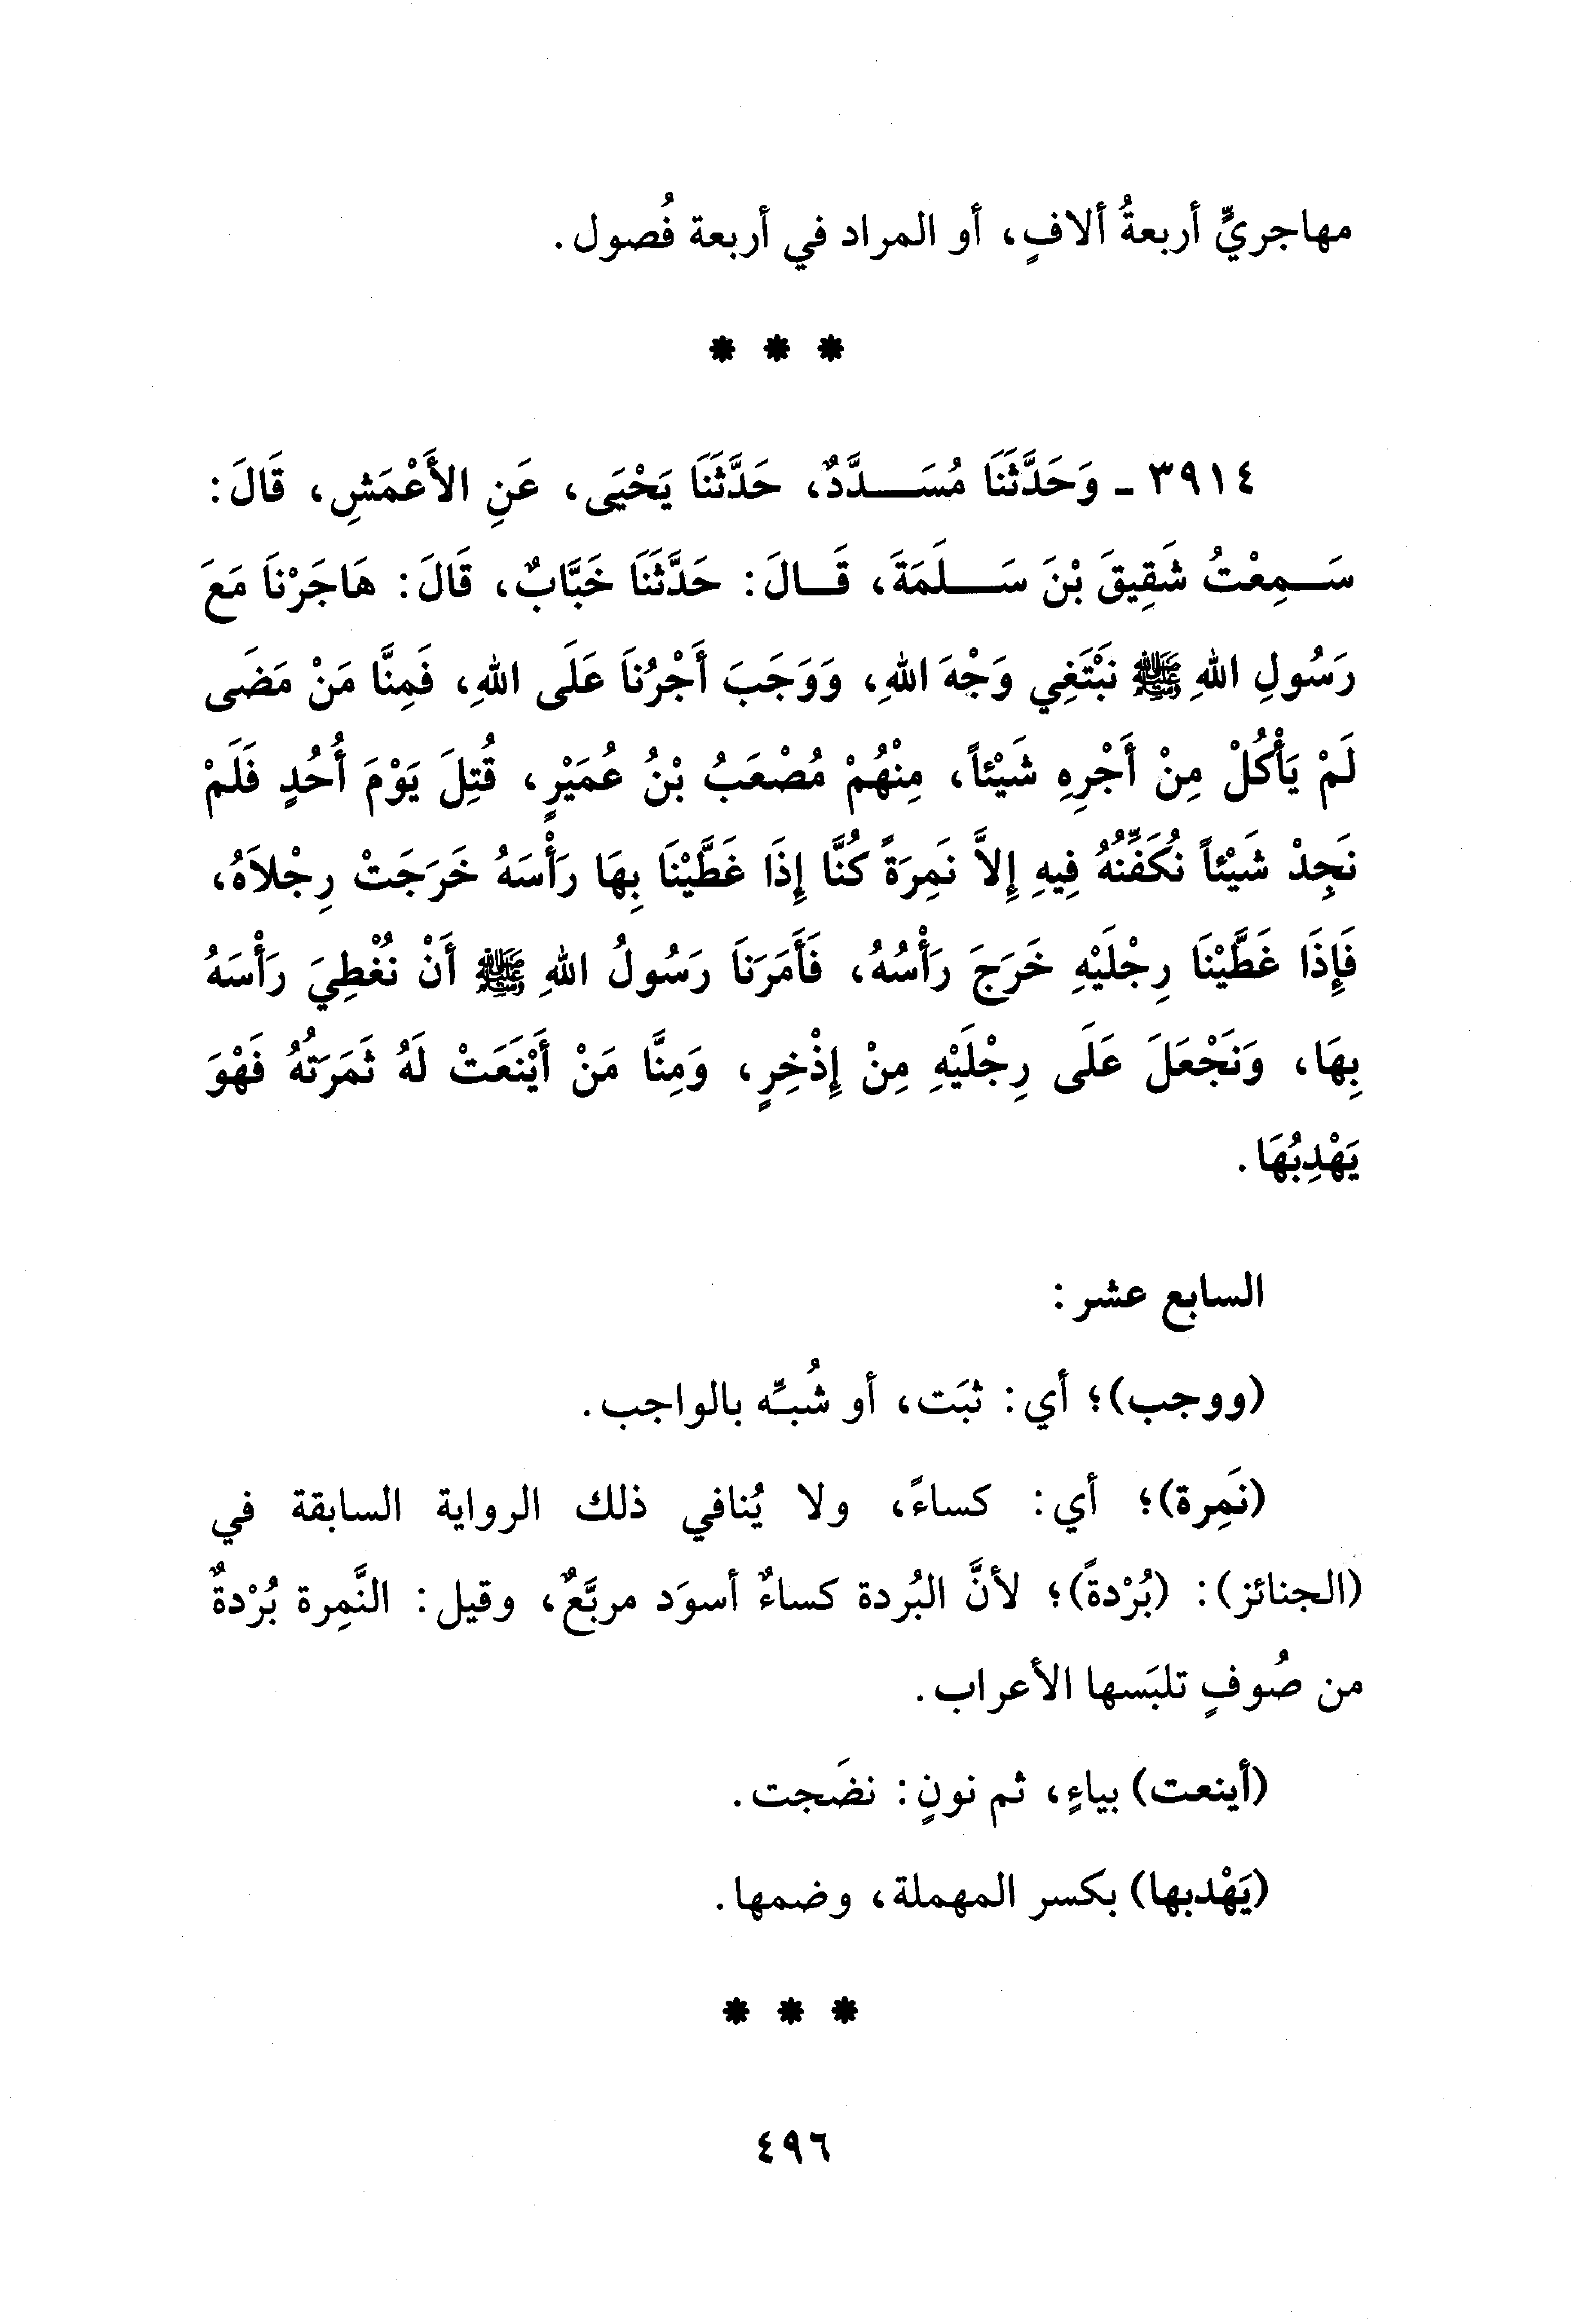 مهاجريٍّ أربعةُ ألافٍ، أو المراد في أربعة فُصول.
* * *
٣٩١٤ - وَحَدَّثَنَا مُسَدَّدٌ، حَدَّثَنَا يَحْيَى، عَنِ الأَعْمَشِ، قَالَ:
سَمِعْتُ شَقِيقَ بْنَ سَلَمَةَ، قَالَ: حَدَّثَنَا خَبَّابٌ، قَالَ: هَاجَرْنَا مَعَ
رَسُولِ اللهِ ﷺ نَبْتَغِي وَجْهَ اللهِ، وَوَجَبَ أَجْرُنَا عَلَى اللهِ، فَمِنَّا مَنْ مَضَى
لَمْ يَأْكُلْ مِنْ أَجْرِهِ شَيْئاً، مِنْهُمْ مُصْعَبُ بْنُ عُمَيْرٍ، قُتِلَ يَوْمَ أُحُدٍ فَلَمْ
نَجِدْ شَيْئاً نُكَفِّنُهُ فِيهِ إِلاَّ نَمِرَةً كُنَّا إِذَا غَطَّيْنَا بِهَا رَأْسَهُ خَرَجَتْ رِجْلاَهُ،
فَإِذَا غَطَّيْنَا رِجْلَيْهِ خَرَجَ رَأْسُهُ، فَأَمَرَنَا رَسُولُ اللهِ ﷺ أَنْ نُغْطِيَ رَأْسَهُ
بِهَا، وَنَجْعَلَ عَلَى رِجْلَيْهِ مِنْ إِذْخِرٍ، وَمِنَّا مَنْ أَيْنَعَتْ لَهُ ثَمَرَتُهُ فَهْوَ
يَهْدِبُهَا.
السابع عشر:
(ووجب)؛ أي: ثبَت، أو شُبِّه بالواجب.
(نَمِرة)؛ أي: كساءً، ولا يُنافي ذلك الرواية السابقة في
(الجنائز): (بُرْدةً)؛ لأنَّ البُردة كساءٌ أسوَد مربَّعٌ، وقيل: النَّمِرة بُرْدةٌ
من صُوفٍ تلبَسها الأعراب.
(أينعت) بياءٍ، ثم نونٍ: نضَجت.
(يَهْدبها) بكسر المهملة، وضمها.
* * *
٤٩٦